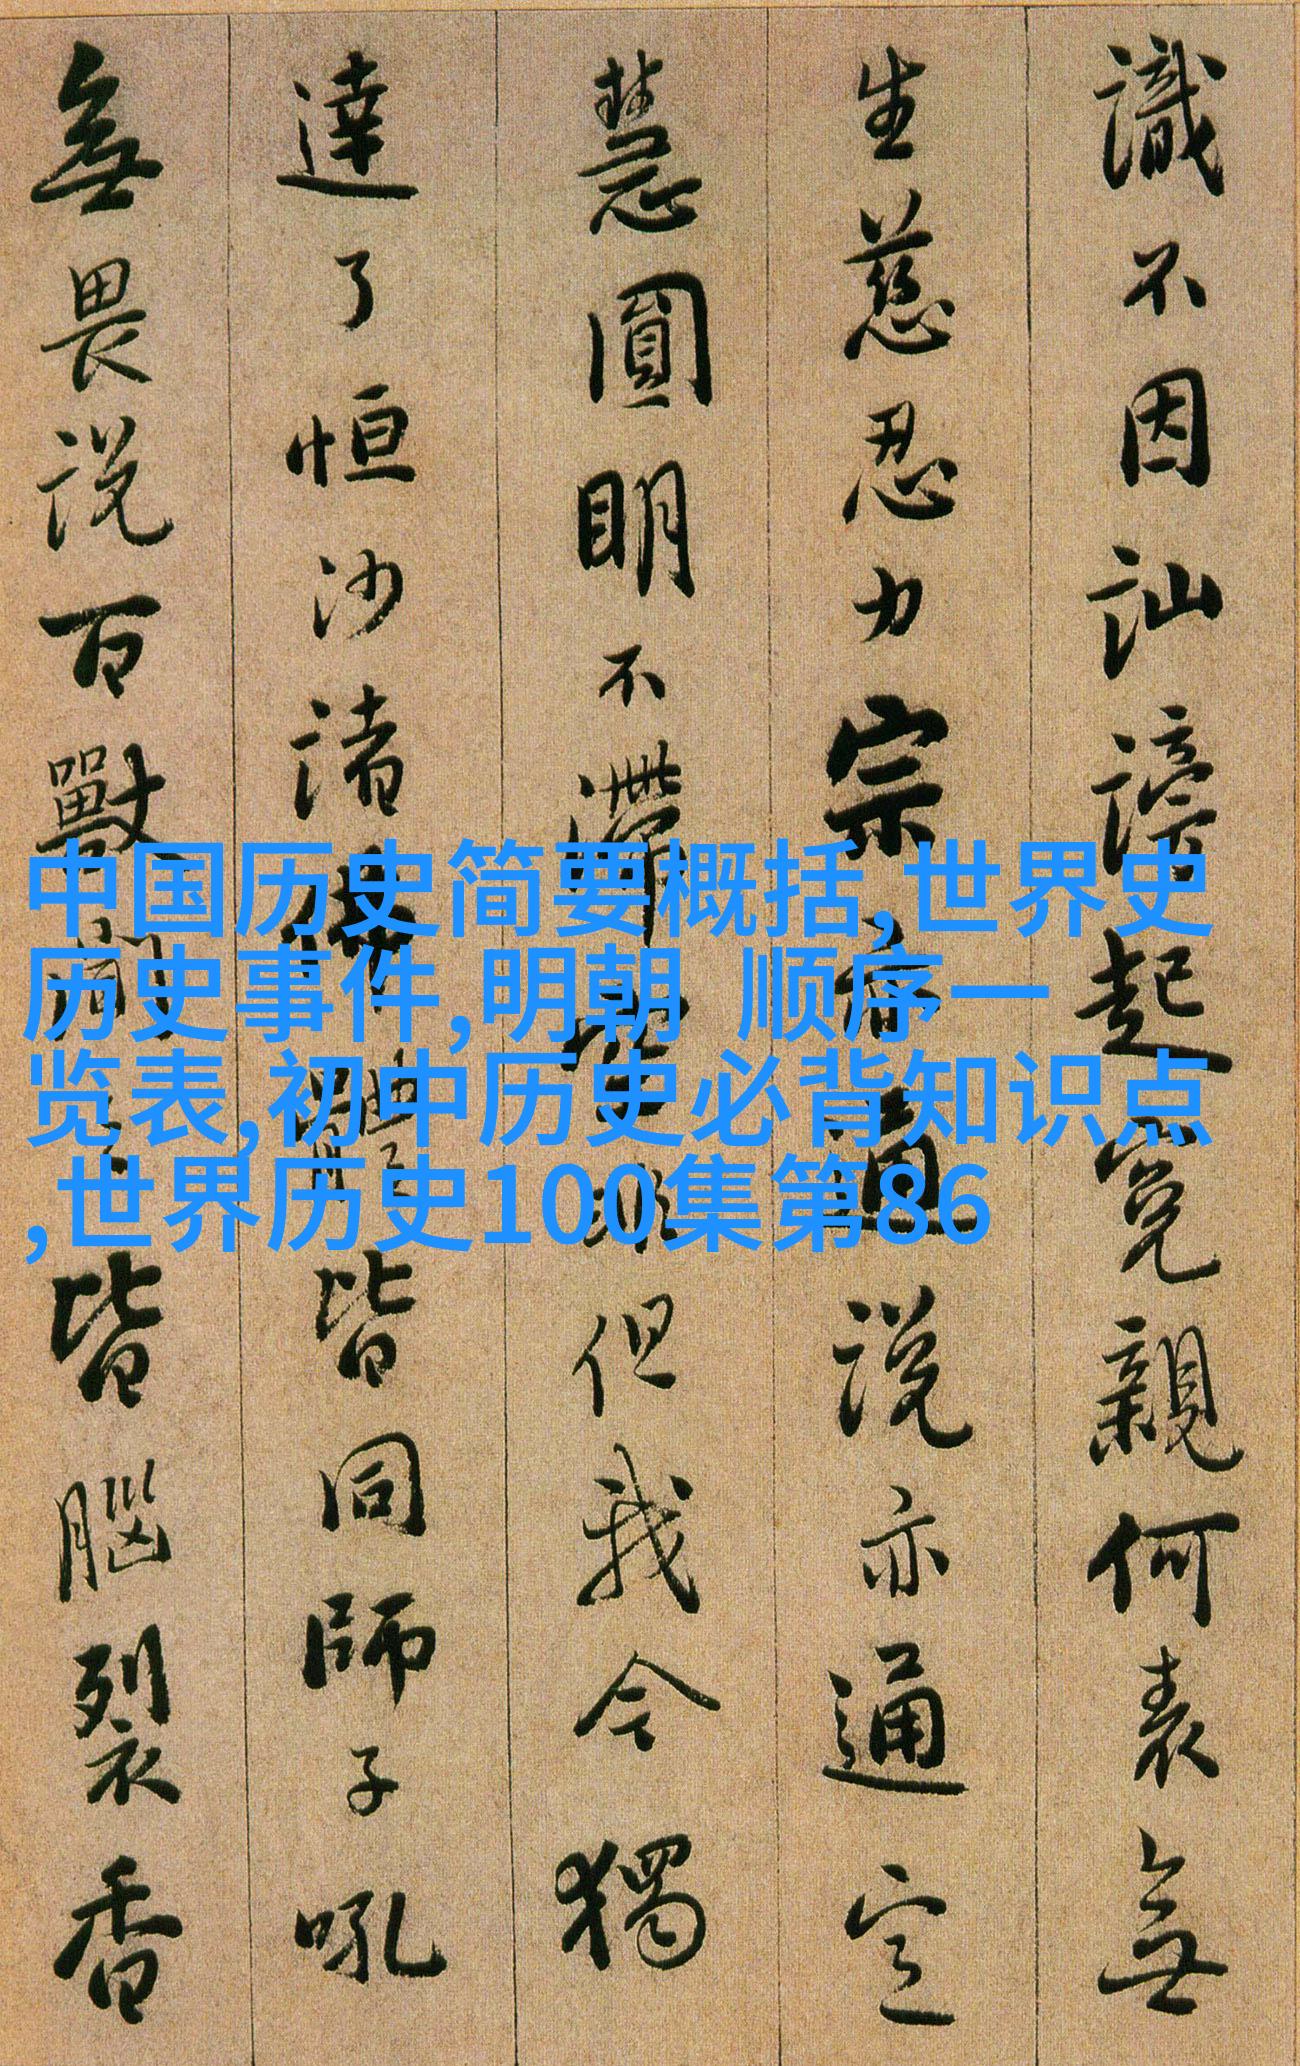 識不因訕謗起冤親何表無
生慈忍力宗亦通說亦通定
慧圓明不滯空非但我今獨
達了恒沙諸佛體皆同師子吼
無畏說百獸聞之皆腦裂香
中国历史简要概括,世界史
历史事件,明朝 顺序一
览表,初中历史必背知识点
,世界历史100集第86